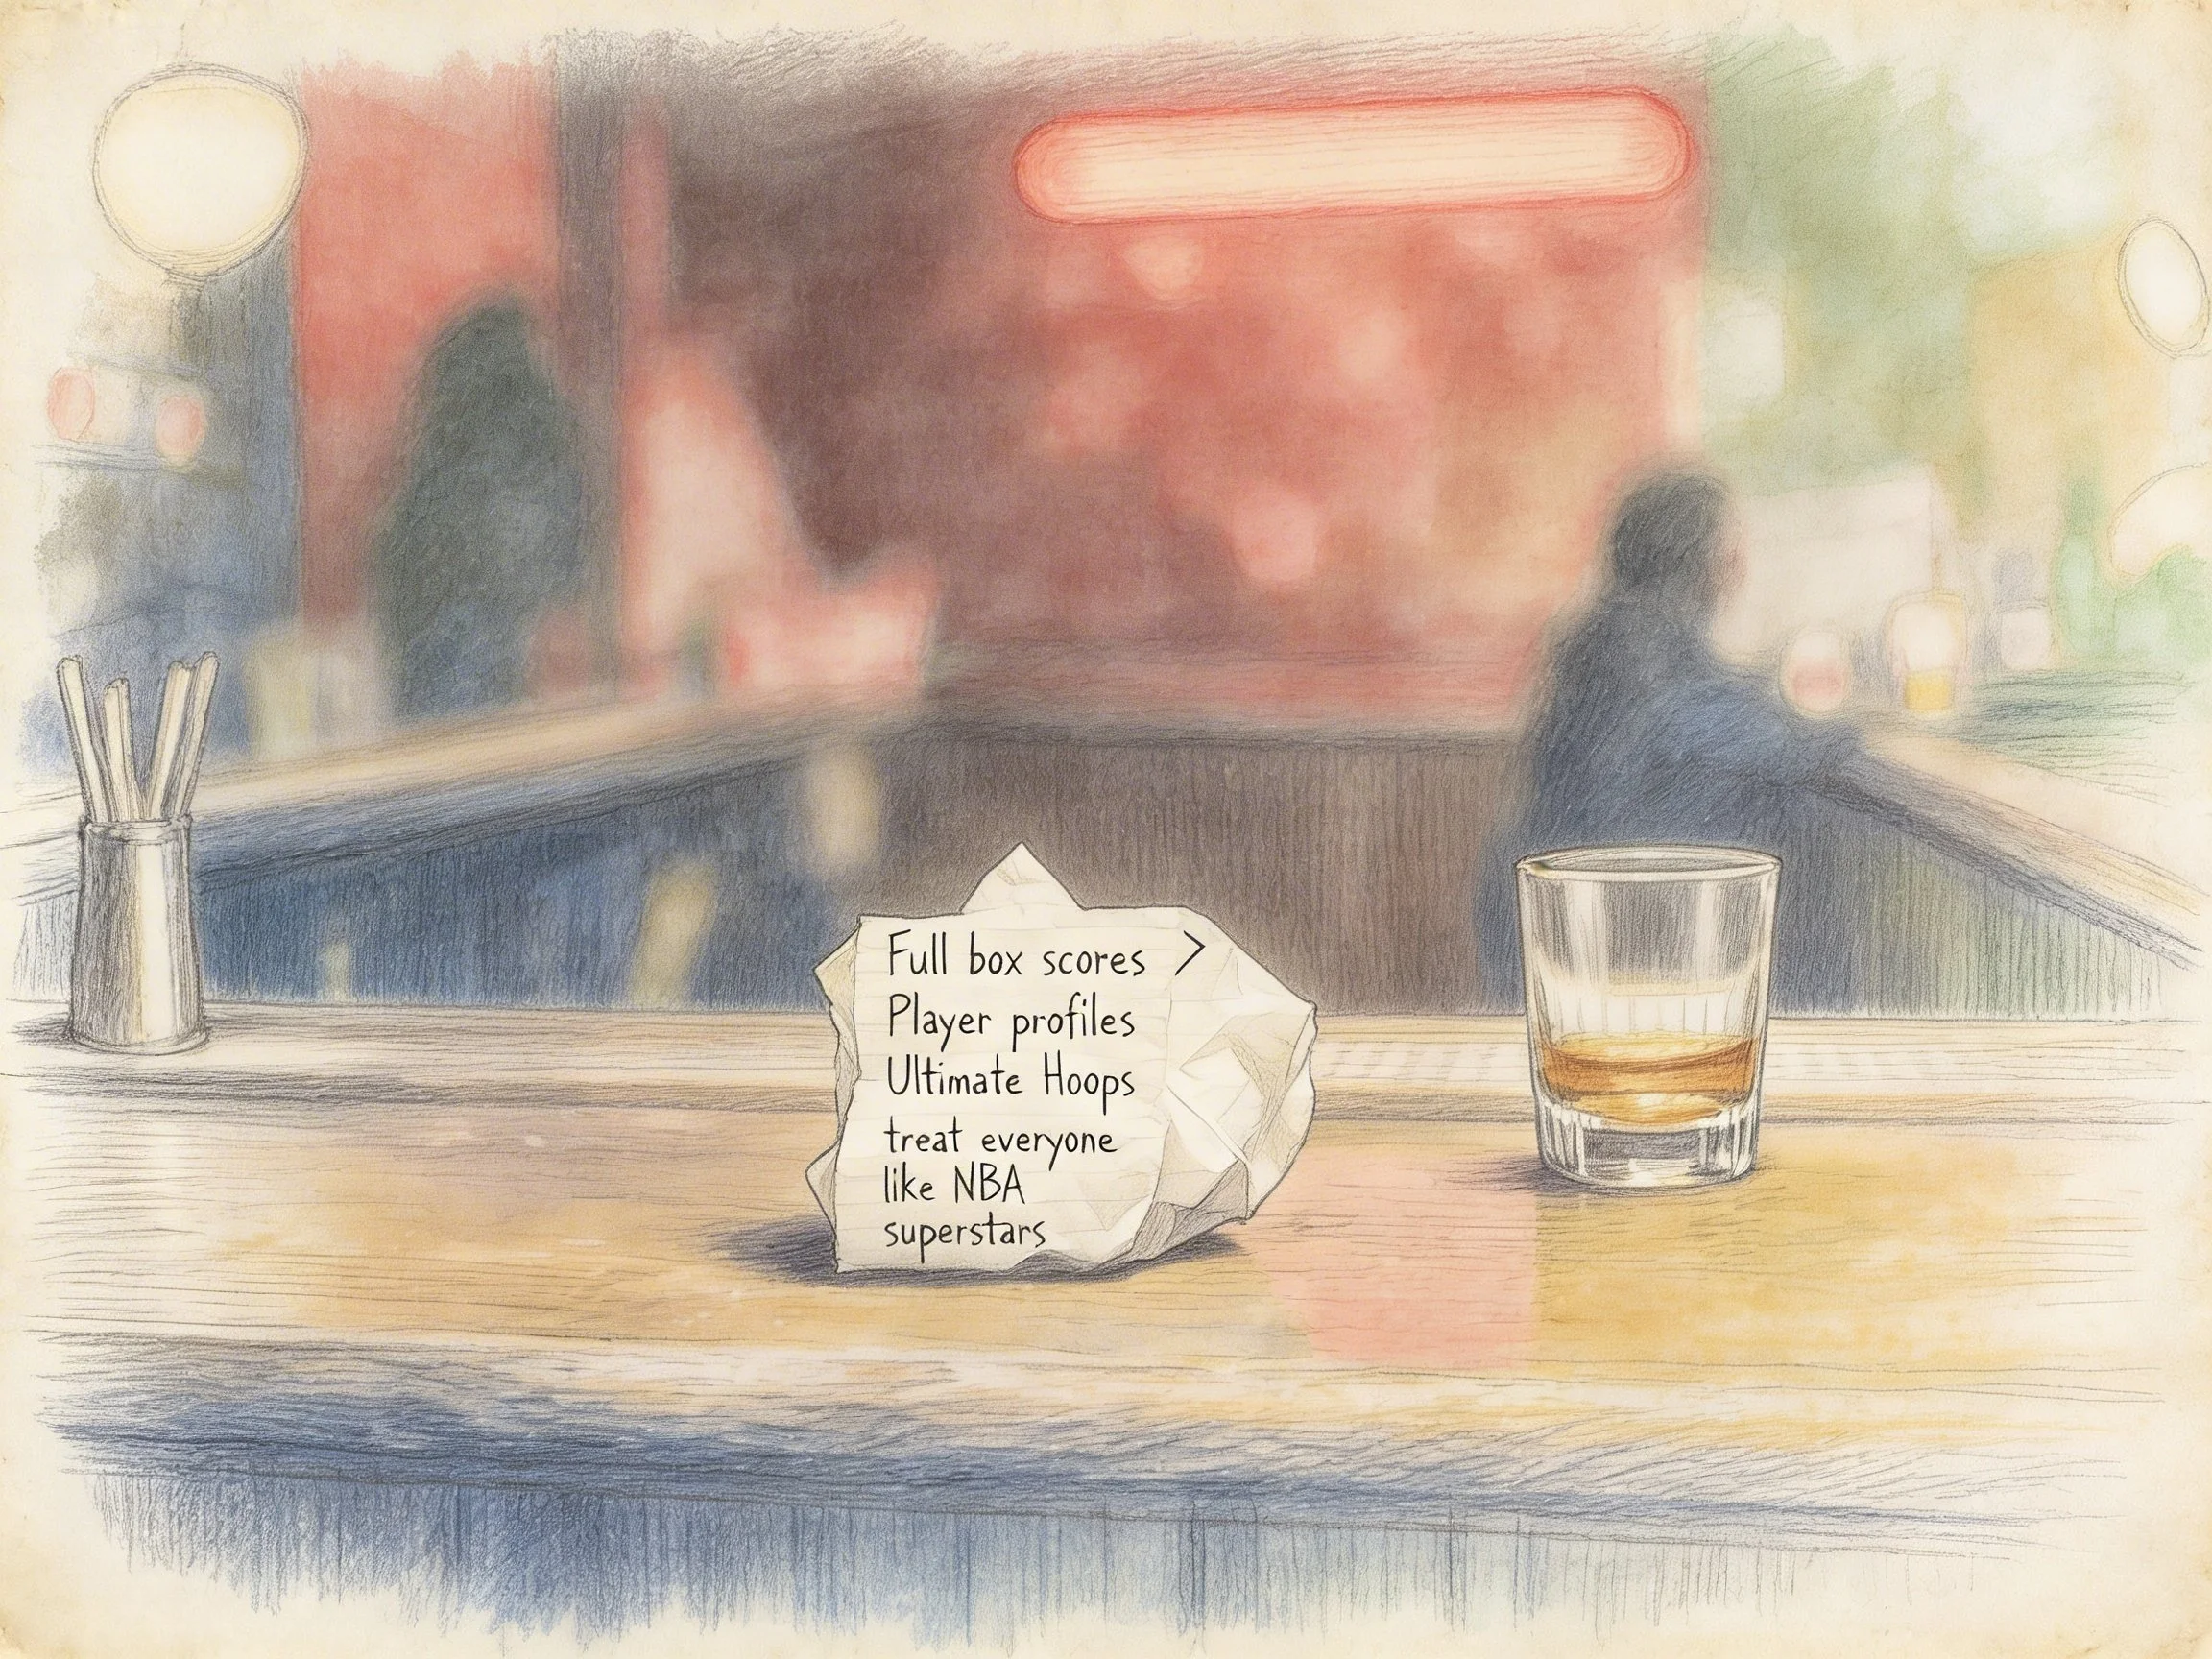 Full box scores >
Player profiles
Ultimate Hoops
treat everyone
like NBA
superstars